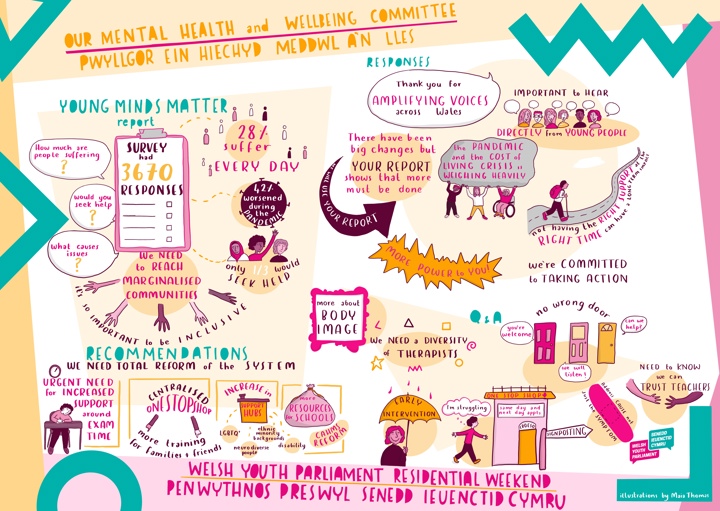 OUR MENTAL HEALTH and WELLBEING COMMITTEE
PWYLLGOR EIN HIECHYD MEDDWL A'N LLES
YOUNG MINDS MATTER
report
How much are
people suffering
?
would you
seek help
?
What causes
issues
?
SURVEY
had
3670
RESPONSES
28%
suffer
EVERY DAY
42%
worsened
during
the
PANDEMIC
only 1/3 would
SEEK HELP
WE NEED
to REACH
MARGINALISED
COMMUNITIES
it's so IMPORTANT to be INCLUSIVE
RESPONSES
Thank you for
AMPLIFYING VOICES
across Wales
IMPORTANT to HEAR
DIRECTLY from YOUNG PEOPLE
There have been
big changes but
YOUR REPORT
shows that more
must be done
WE WILL USE YOUR REPORT
the PANDEMIC
and the COST of
LIVING CRISIS is
WEIGHING HEAVILY
not having the RIGHT SUPPORT at the
RIGHT TIME can have a long term impact
MORE POWER to YOU!
we're COMMITTED
to TAKING ACTION
more about
BODY
IMAGE
RECOMMENDATIONS
WE NEED TOTAL REFORM of the SYSTEM
URGENT NEED
for INCREASED
SUPPORT
around
EXAM
TIME
CENTRALISED
ONE STOP SHOP
more training
for families + friends
INCREASE in
SUPPORT
HUBS
LGBTQ+
ethnic
minority
backgrounds
neurodiverse
people
disability
more
RESOURCES
for SCHOOLS
CAMHS
REFORM
Q&A
we NEED a DIVERSITY
of THERAPISTS
no wrong door
you're
welcome
can we
help?
we will
listen!
EARLY
INTERVENTION
I'm struggling
ONE STOP SHOP
same day and
next day appts
SIGNPOSTING
NEED to KNOW
we can
TRUST TEACHERS
WELSH
YOUTH
PARLIAMENT
SENEDD
IEUENCTID
CYMRU
WELSH YOUTH PARLIAMENT RESIDENTIAL WEEKEND
PENWYTHNOS PRESWYL SENEDD IEUENCTID CYMRU
illustrations by Mair Thomas